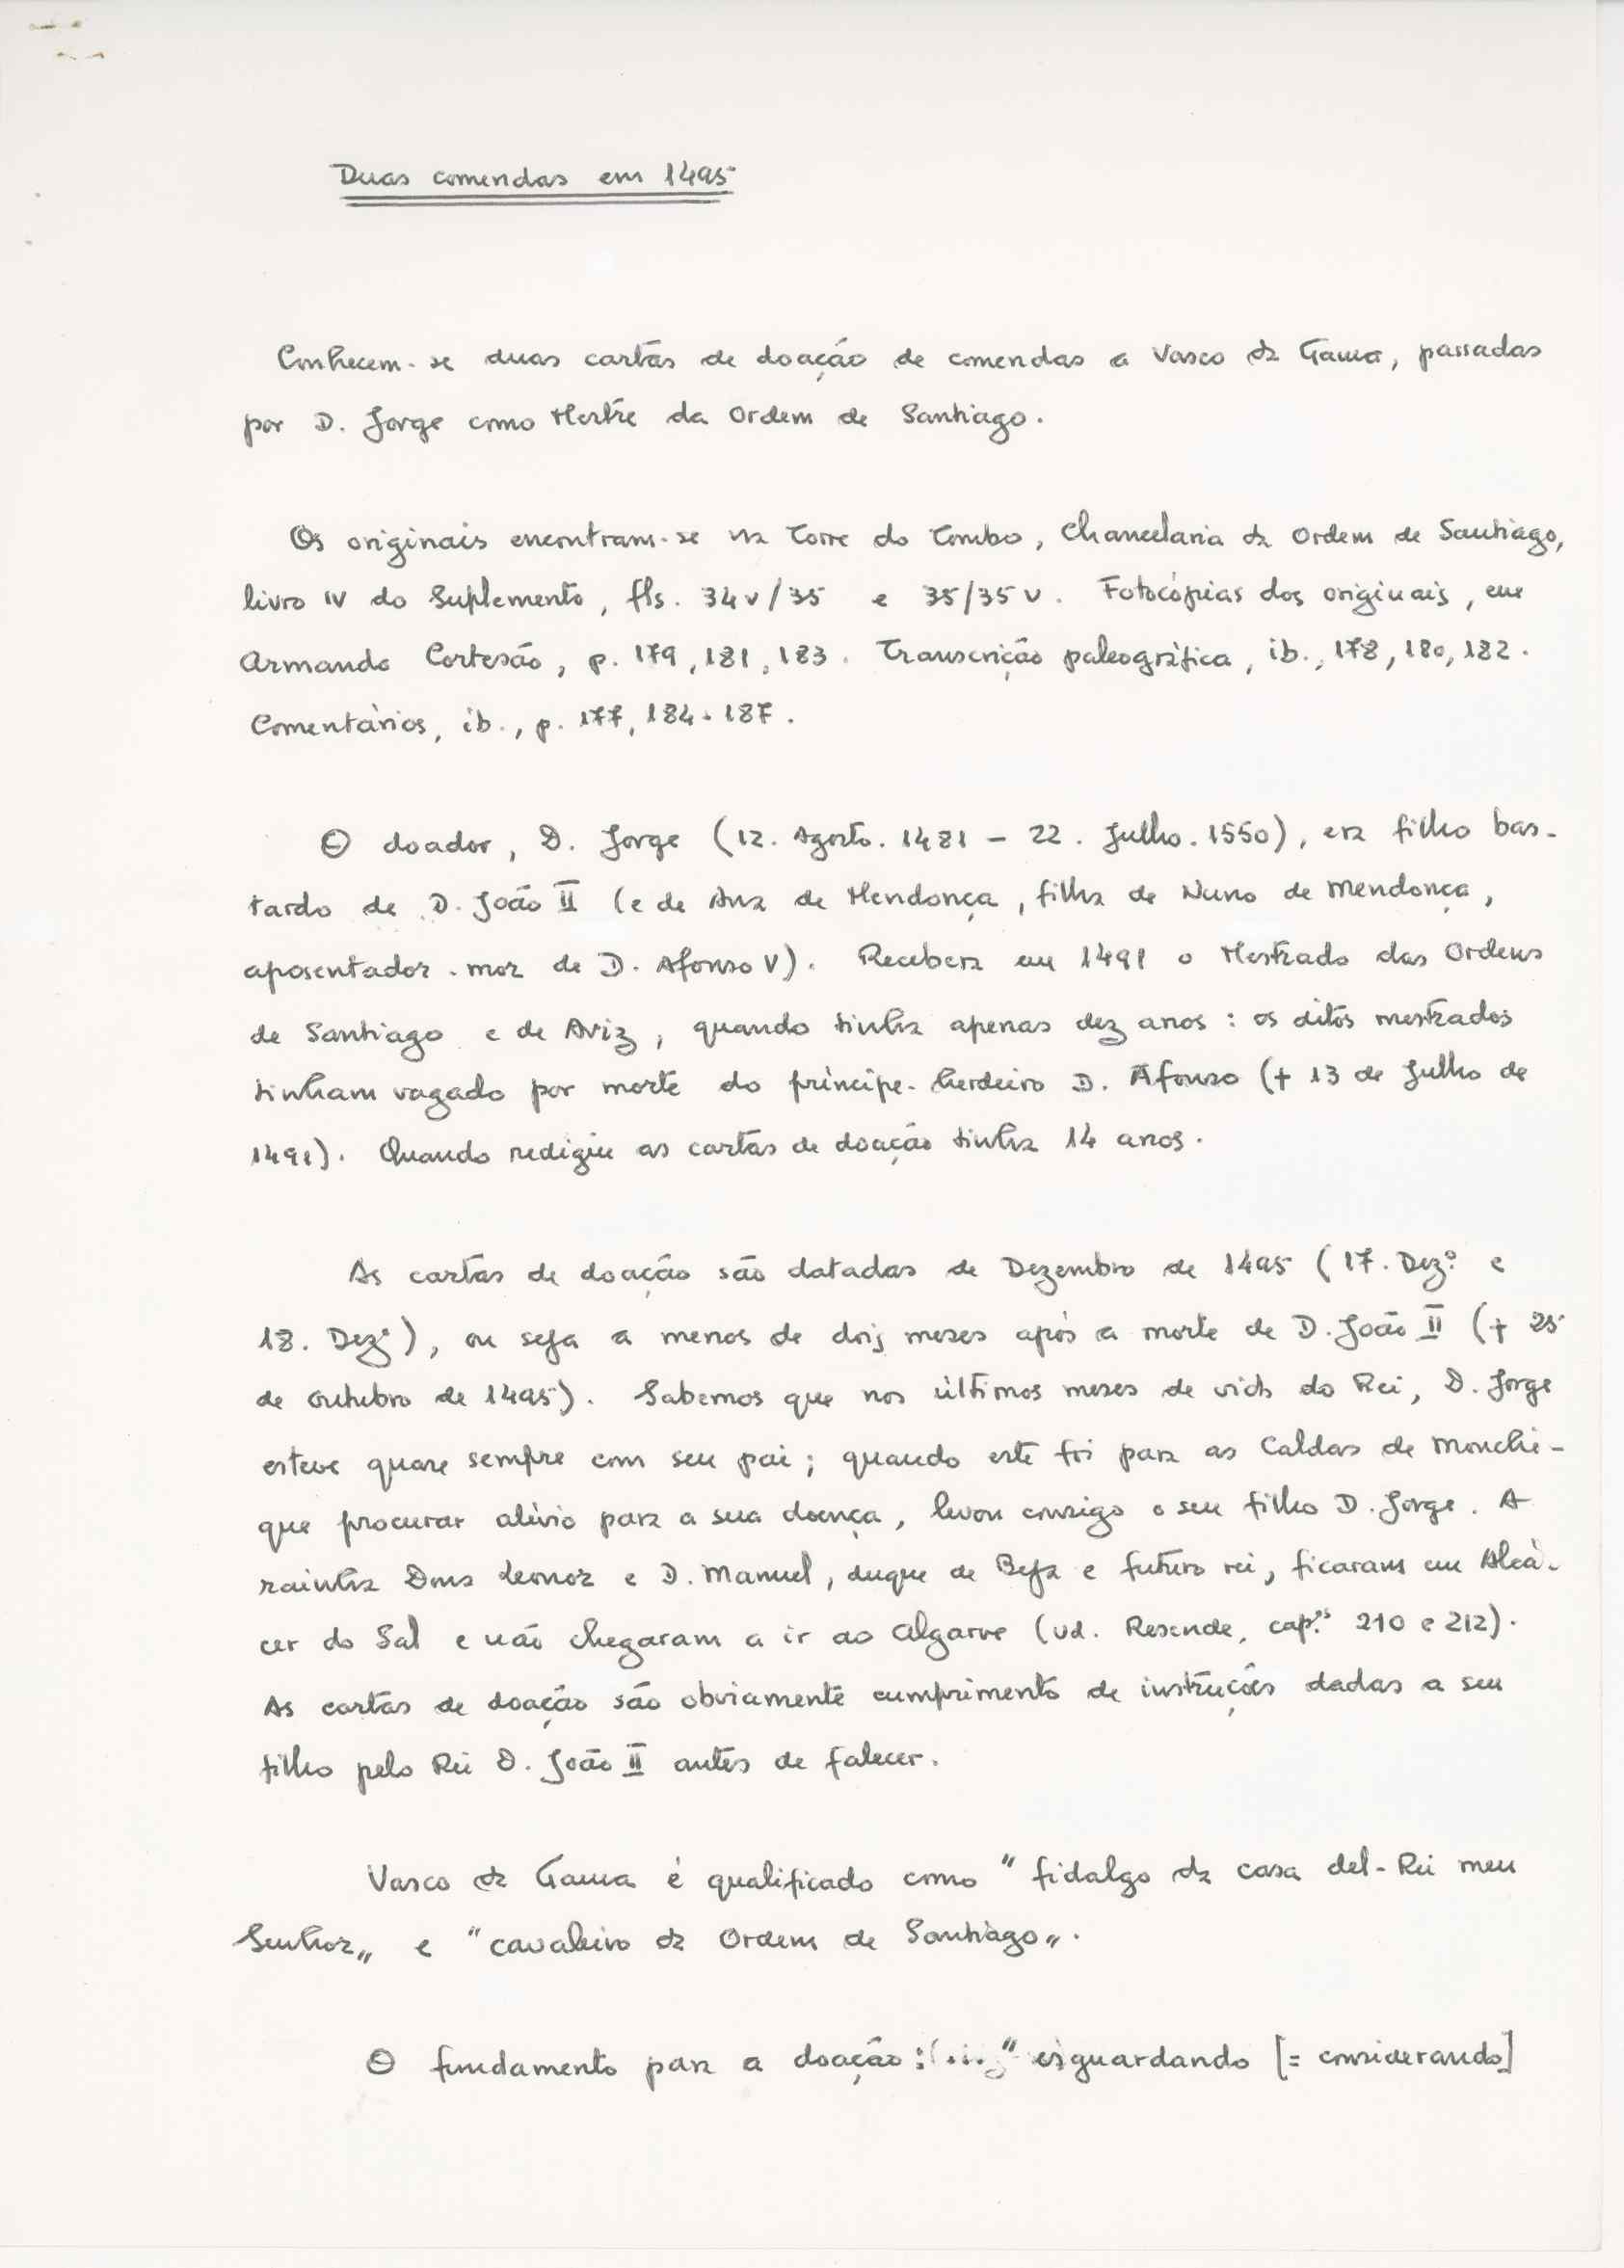 Duas comendas em 1495
Conhecem-se duas cartas de doação de comendas a Vasco da Gama, passadas
por D. Jorge como Mestre da Ordem de Santiago.
Os originais encontram-se na Torre do Tombo, Chancelaria da Ordem de Santiago,
livro IV do Suplemento, fls. 34v/35 e 35/35v. Fotocópias dos originais, em
Armando Cortesão, p. 179, 181, 183. Transcrição paleográfica, ib., 178, 180, 182.
Comentários, ib., p. 177, 184-187.
O doador, D. Jorge (12. Agosto. 1481 - 22. Julho. 1550), era filho bas-
tardo de D. João II (e de Ana de Mendonça, filha de Nuno de Mendonça,
aposentador-mor de D. Afonso V). Recebera em 1491 o Mestrado das Ordens
de Santiago e de Aviz, quando tinha apenas dez anos: os ditos mestrados
tinham vagado por morte do príncipe-herdeiro D. Afonso (+ 13 de Julho de
1491). Quando redigiu as cartas de doação tinha 14 anos.
As cartas de doação são datadas de Dezembro de 1495 (17. Dez.º e
18. Dez.º), ou seja a menos de dois meses após a morte de D. João II (+ 25
de Outubro de 1495). Sabemos que nos últimos meses de vida do Rei, D. Jorge
esteve quase sempre com seu pai; quando este foi para as Caldas de Monchi-
que procurar alívio para a sua doença, levou consigo o seu filho D. Jorge. A
rainha Dona Leonor e D. Manuel, duque de Beja e futuro rei, ficaram em Alcá-
cer do Sal e não chegaram a ir ao Algarve (vd. Resende, cap.ºs 210 e 212).
As cartas de doação são obviamente cumprimento de instruções dadas a seu
filho pelo Rei D. João II antes de falecer.
Vasco da Gama é qualificado como "fidalgo da casa del-Rei meu
Senhor" e "cavaleiro da Ordem de Santiago".
O fundamento para a doação: "esguardando [= considerando]